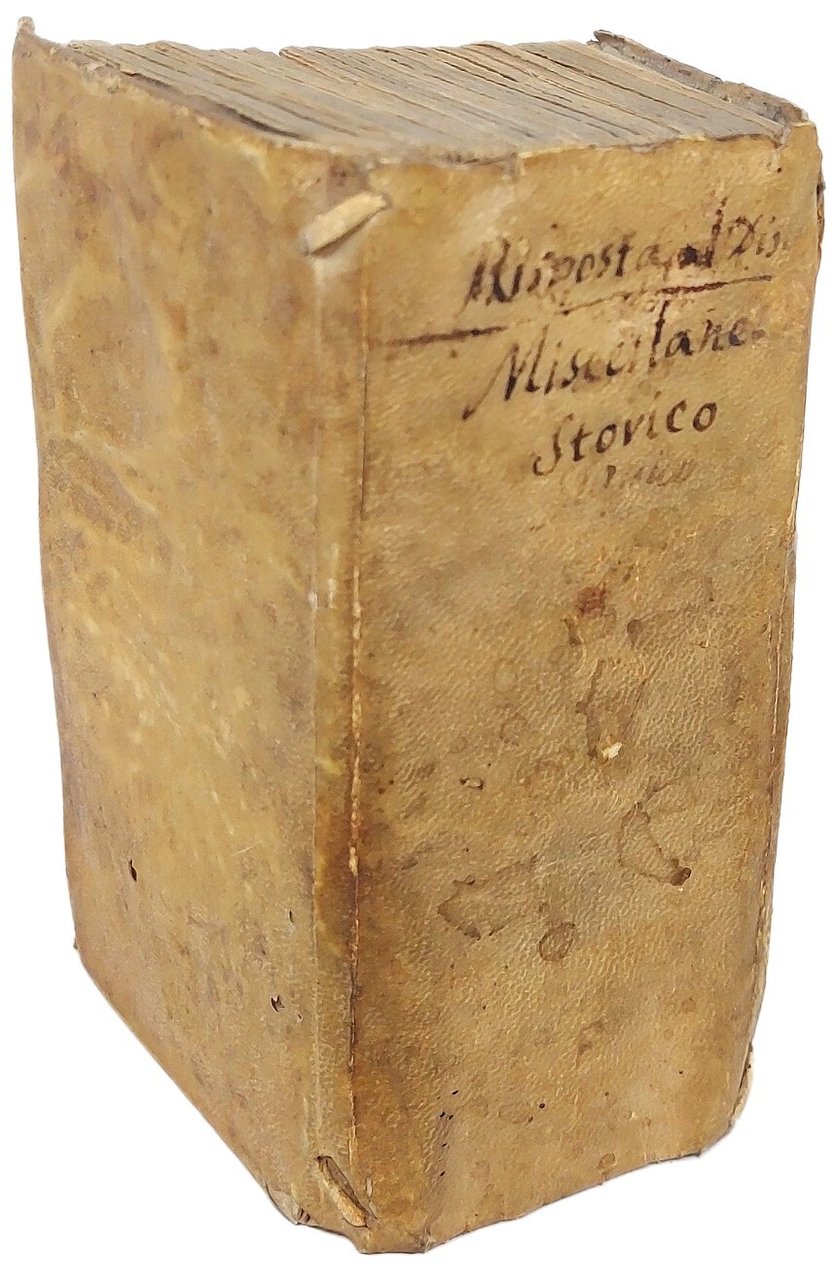 Risposta al Dis
Miscellane
Storico